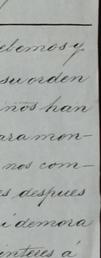 ebemos y
su orden
nos han
ara mon-
nos com-
es despues
demora
interes á